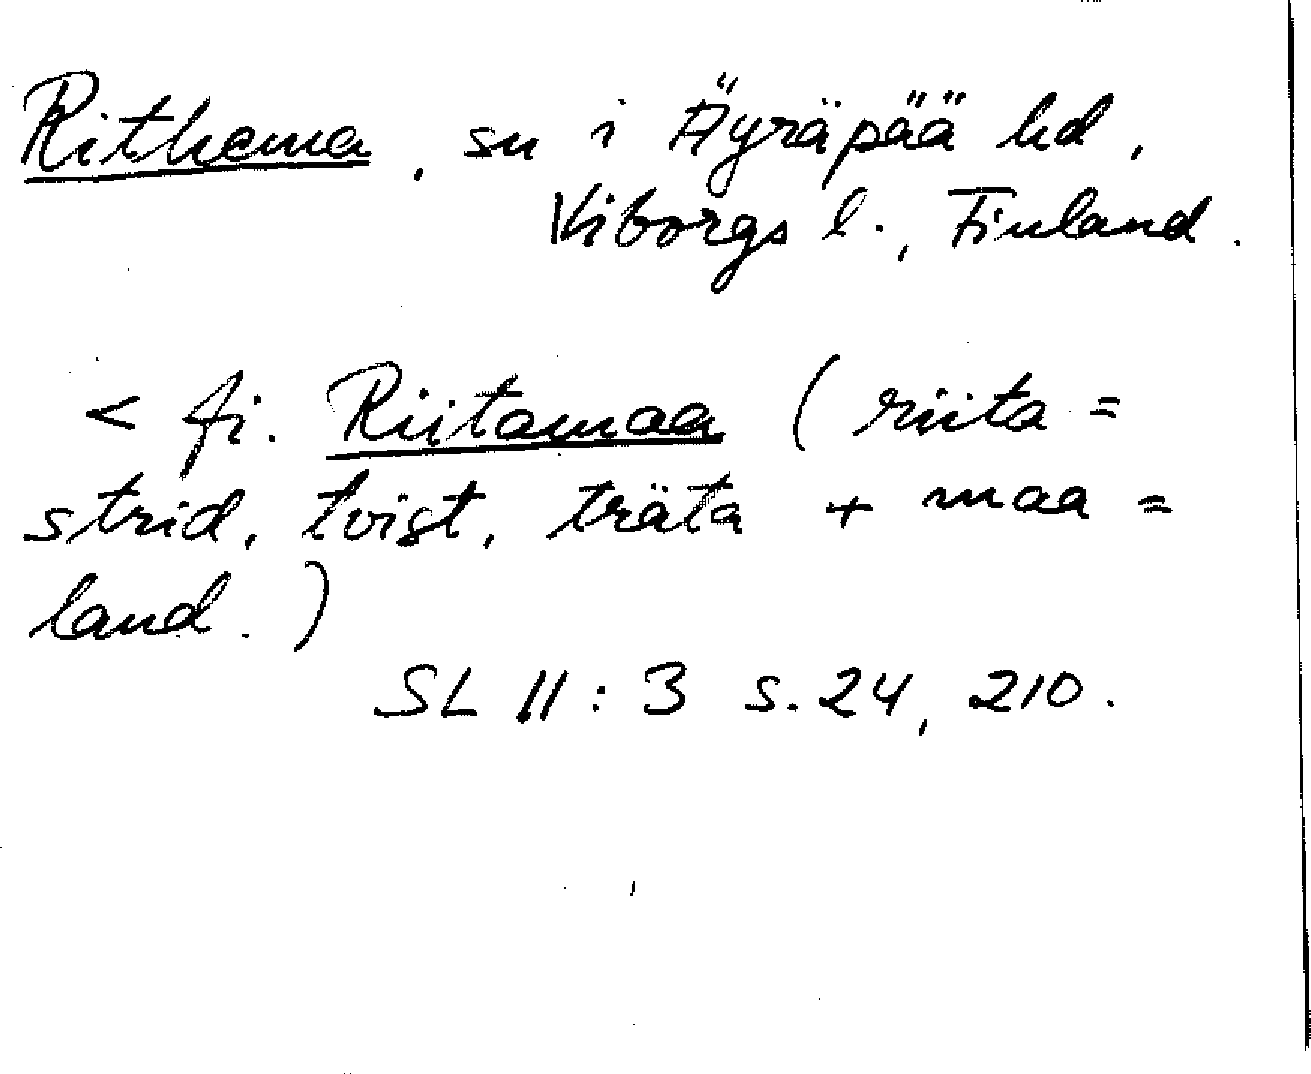 Rithama, sn i Äyräpää hd,
Viborgs l., Finland.
< fi. Riitamaa (riita =
strid, tvist, träta + maa =
land.)
SL II: 3 s. 24, 210.